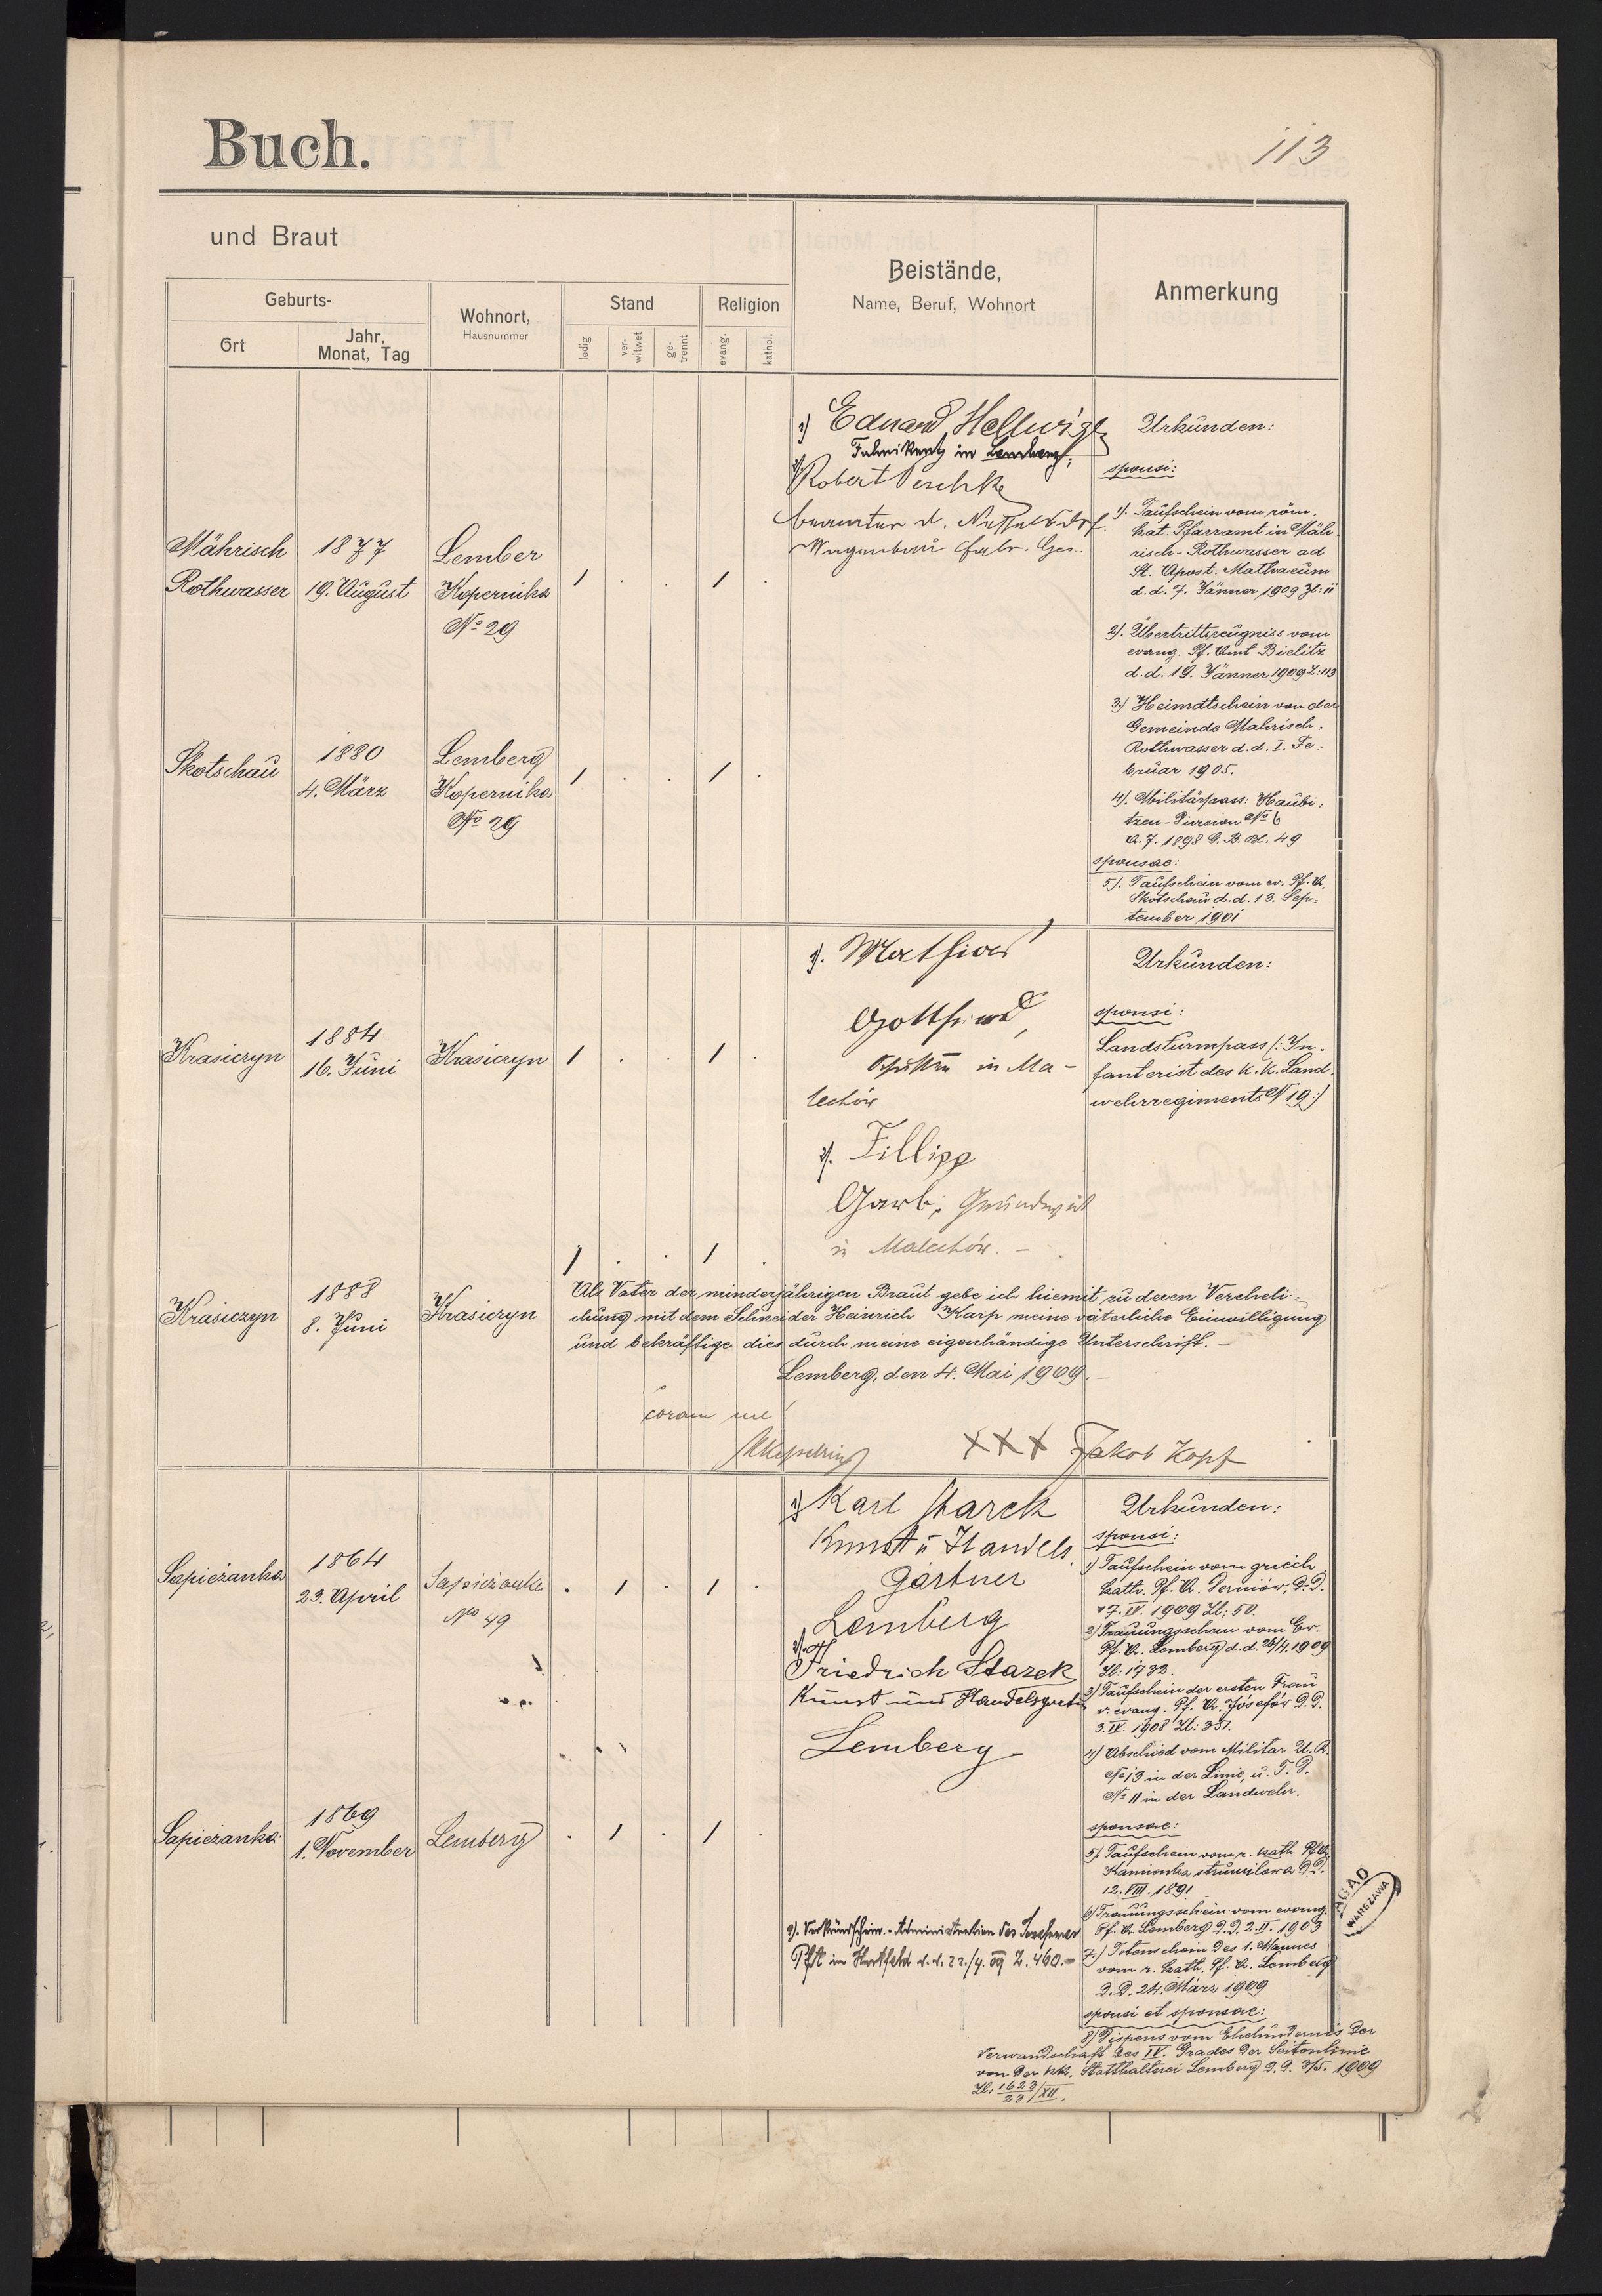 Buch.
113
und Braut
Geburts-
Ort
Jahr,
Monat, Tag
Wohnort,
Hausnummer
Stand
ledig
ver-
witwet
ge-
trennt
Religion
evang.
kathol.
Beistände,
Name, Beruf, Wohnort
Anmerkung
Mährisch
Rothwasser
1877
19. August
Lember
Kopernika
No 29
1 . . 1 .
1) Eduard Hellwig
Fabrikant in Lemberg;
2) Robert Peschke
Beamter d. Nesselsdorf.
Wagenbau fabr. Ges.
Urkunden:
sponsi:
1). Taufschein vom röm.
kat. Pfarramt in Mäh-
risch-Rothwasser ad
St. Apost. Mathaeum
d.d. 7. Jänner 1909 Zl: 11
2). Übertrittszeugniss vom
evang. Pf. Amt Bielitz
d.d. 19. Jänner 1909 Z: 113
3) Heimdtschein von der
Gemeinde Mahrisch,
Rothwasser d.d. I. Fe:
bruar 1905.
4). Militärpass: Haubi:
tzen-Division No 6
A. J. 1898 G. B. Bl. 49
sponsae:
5). Taufschein vom ev. Pf. A.
Skotschau d.d. 13. Sep.
tember 1901
Skotschau
1880
4. März
Lemberg
Kopernika
No 29
1 . . 1 .
Krasiczyn
1884
16. Juni
Krasiczyn
1 . . 1 .
1). Mathias
Gottfried,
in Ma-
lechów
2). Fillipp
Garb; Grundwirt
in Malechów. –
Urkunden:
sponsi:
Landsturmpass /: In-
fanterist des k. k. Land.
wehrregiments N 19 :/
Krasiczyn
1888
8. Juni
Krasiczyn
1 . . 1 .
Als Vater der minderjährigen Braut gebe ich hiemit zu deren Vereheli:
chung mit dem Schneider Heinrich Karp meine väterliche Einwilligung
und bekräftige dies durch meine eigenhändige Unterschrift. –
Lemberg, den 4. Mai 1909. –
coram me!
XXX Jakob Kopf
Sapieżanka
1864
23. April
Sapieżanka
No 49
. 1 . 1 .
1) Karl Starck
Kunst u Handels.
gärtner
Lemberg
2).
Friedrich Starck
Kunst und Handelsgärtn
Lemberg
Urkunden:
sponsi:
1) Taufschein vom griech
kath. Pf. A. Derniów, d.d.
7. IV. 1909 Zl: 50.
2) Trauungsschein vom Ev.
Pf. A. Lemberg d.d. 26/4 1909
Zl: 1733.
3) Taufschein der ersten Frau
v. evang. Pf. A. Józefów d.d.
3. IV. 1908 Zl: 351.
4) Abschied vom Militar U. R.
No 13 in der Linie, u. T. D.
No 11 in der Landwehr.
sponsae:
5). Taufschein vom r. kath Pf A.
Kamionka strumiłowa d.d.
12. VIII. 1891.
6) Trauungsschein vom evang.
Pf. A. Lemberg d.d. 2. II. 1903
7.) Totenschein des 1. Mannes
vom r. kath. Pf. A. Lemberg
d.d. 24. März 1909
sponsi et sponsae:
8) Dispens vom Ehehindernis der
Verwandschaft des IV. Grades der Seitenlinie
von der k.k. Statthalterei Lemberg d.d. 3/5. 1909
Zl: 1623/23/XII.
Sapieżanka
1869
1. November
Lemberg
. 1 . 1 .
9). Verkündschein. - Administration der
d.d. 22./4. 09 Z. 460. –
AGAD
WARSZAWA